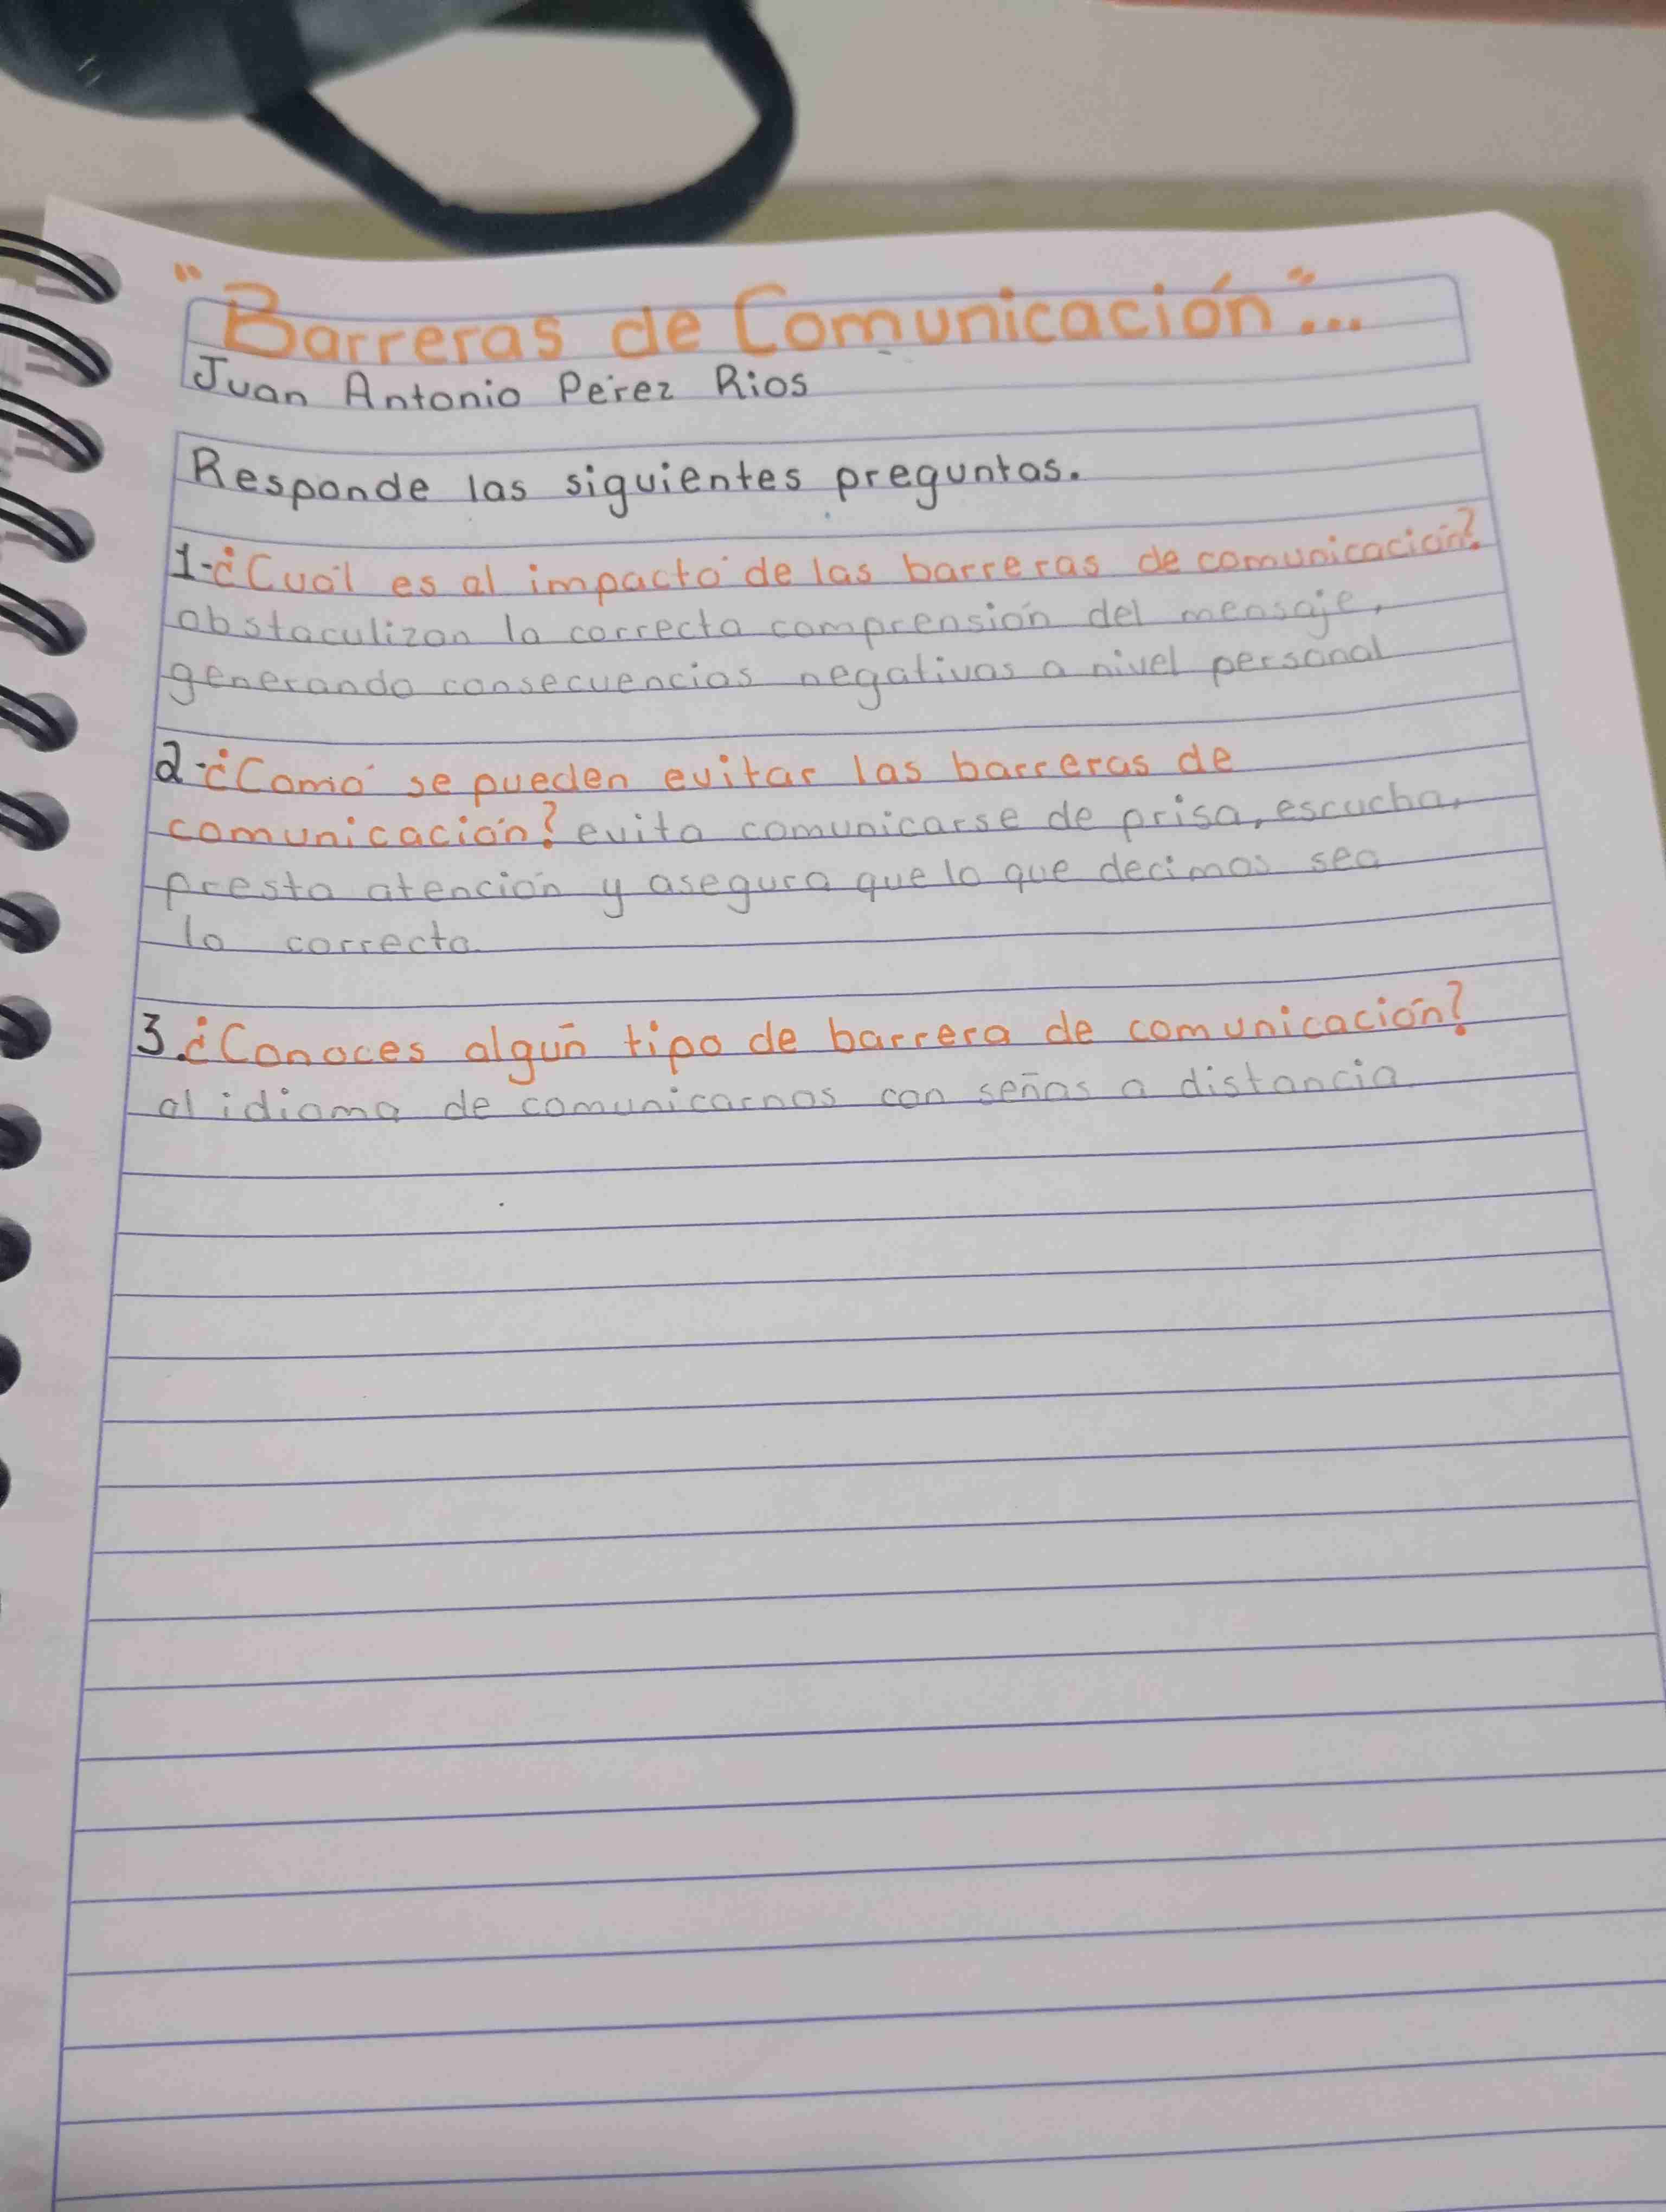 "Barreras de Comunicación"...
Juan Antonio Perez Rios
Responde las siguientes preguntas.
1-¿Cuál es al impacto de las barreras de comunicación?
obstaculizan la correcta comprensión del mensaje,
generando consecuencias negativas a nivel personal
2-¿Comó se pueden evitar las barreras de
comunicación? evita comunicarse de prisa, escucha,
presta atención y asegura que lo que decimos sea
lo correcto.
3.¿Conoces algún tipo de barrera de comunicación?
al idioma de comunicarnos con señas a distancia